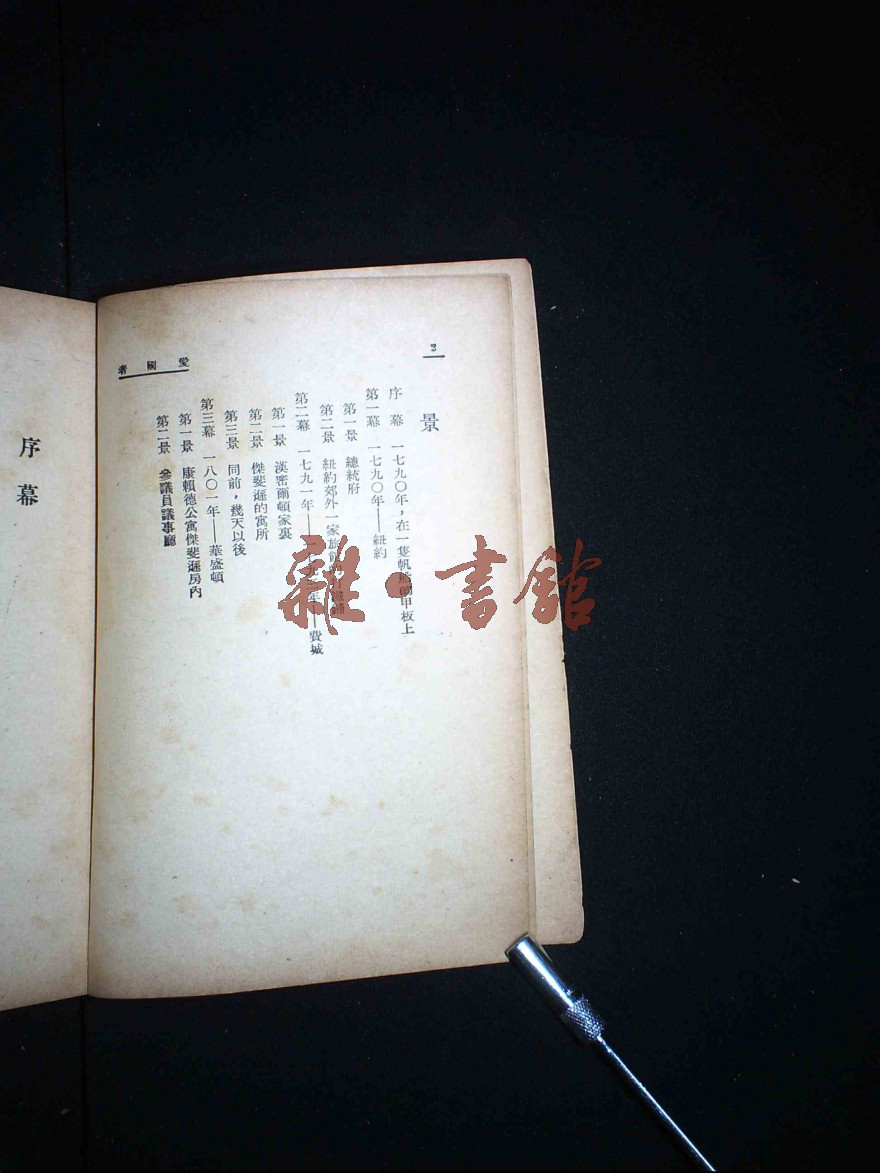 2
景
序 幕 一七九〇年，在一隻帆船的甲板上
第一幕 一七九〇年——紐約
第一景 總統府
第二景 紐約郊外一家旅館的打鐵鋪
第二幕 一七九一年——一七九 年——費城
第一景 漢密爾頓家裏
第二景 傑斐遜的寓所
第三景 同前，幾天以後
第三幕 一八〇一年——華盛頓
第一景 康賴德公寓傑斐遜房內
第二景 參議員議事廳
愛國者
序幕
雜·書館